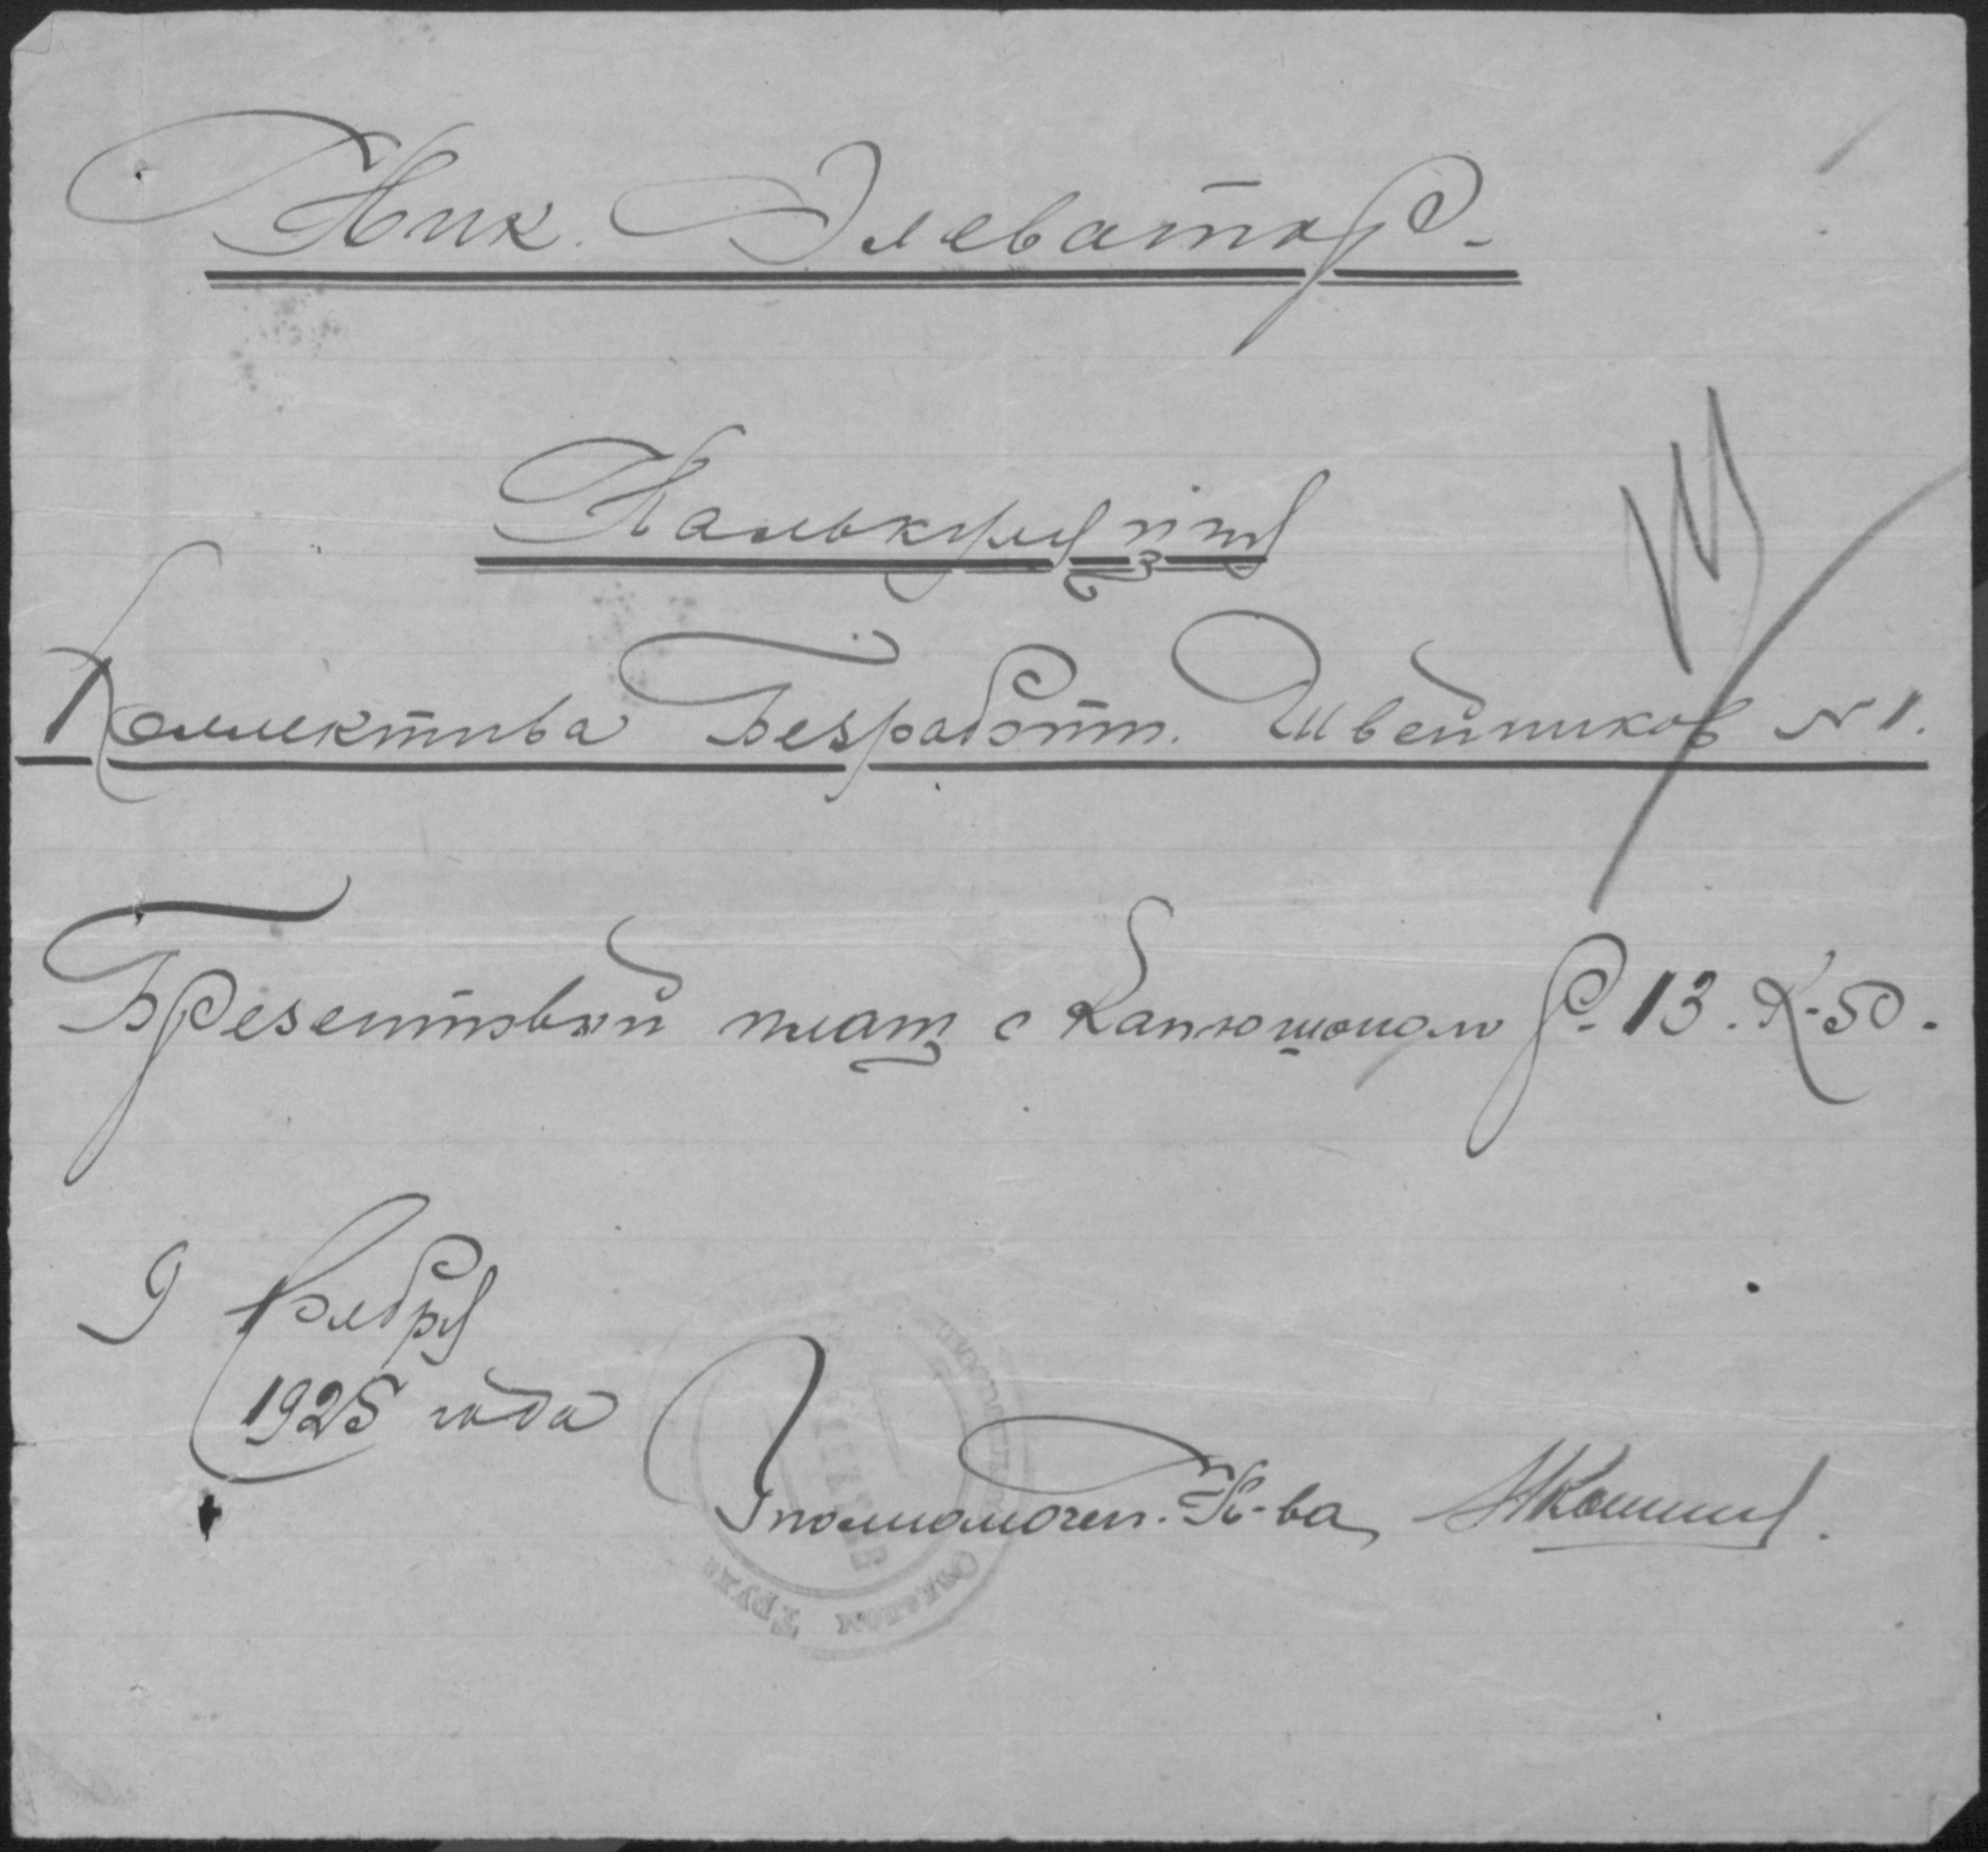 Ник. Элеватор.
Калькуляция
Коллектива Безработн. Швейников № 1.
Брезентовый плащ с капюшоном Р. 13. К. 50.
9 Ноября
1925 года
Уполномочен. К-ва